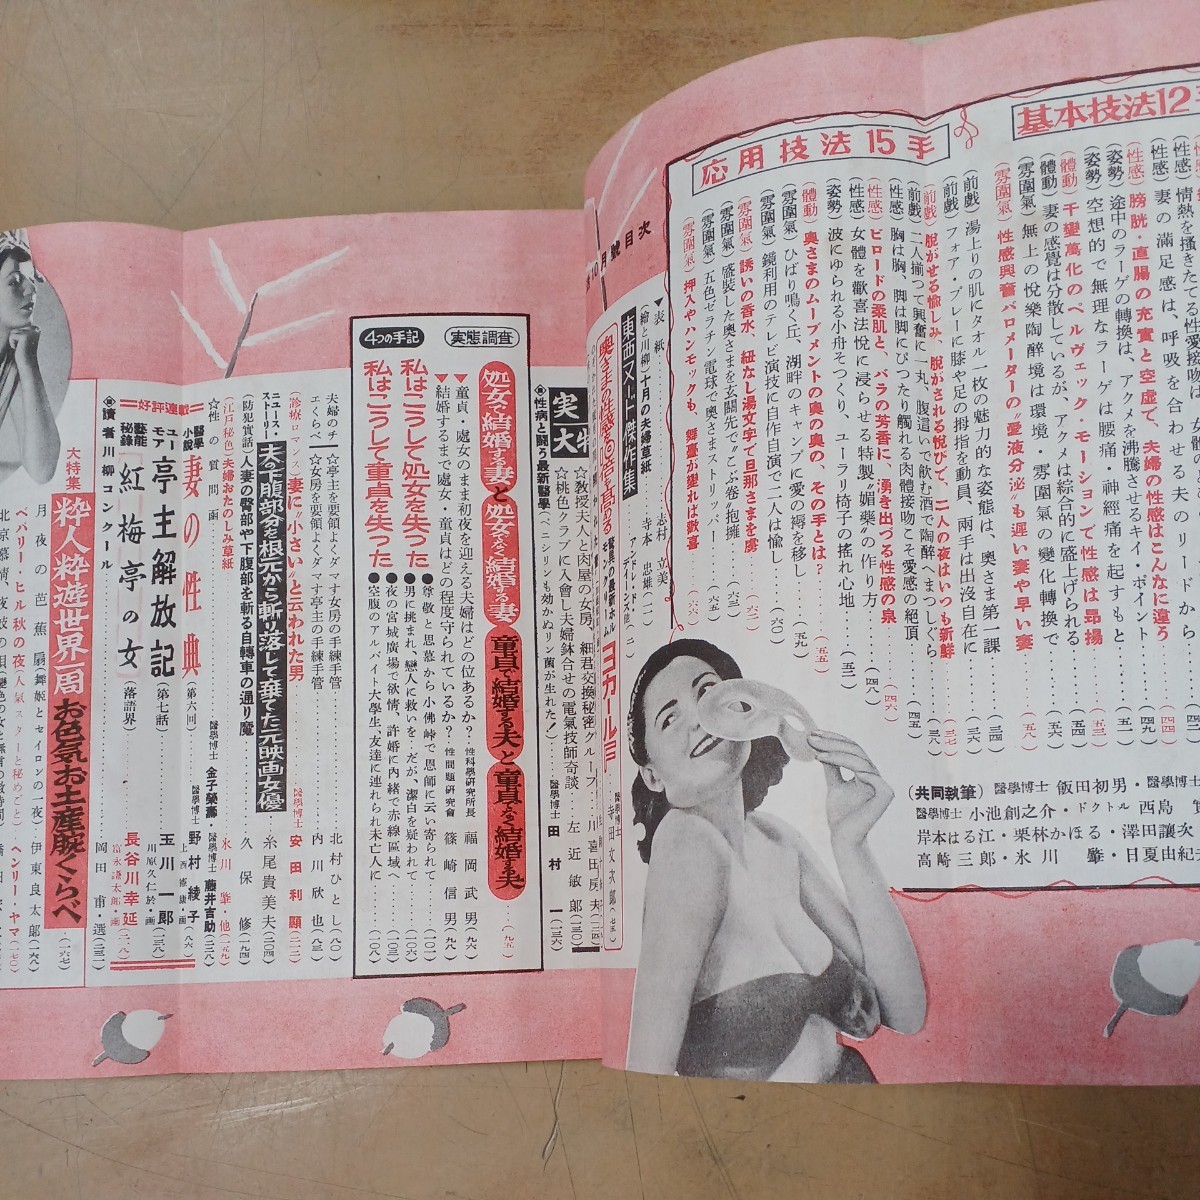 基本技法12
(性感)情熱を掻きたてる性愛接吻は、女體の
(性感)妻の満足感は、呼吸を合わせた夫の
(性感)膀胱・直腸の充實と空虚で、夫婦の性感はこんなに違う
(姿勢)途中のラーゲの轉換は、アクメを沸騰させるキイ・ポイント
(姿勢)空想的で無理なラーゲは腰痛・神經痛を起すもと
(體動)千變萬化のペルヴェック・モーションで性感は昂揚
(體動)妻の感覺は分散しているが、アクメは綜合的に盛上げられる
(雰圍氣)無上の悦樂陶醉境は環境・雰圍氣の變化轉換で
(雰圍氣)性感興奮バロメーターの〝愛液分泌〟も遅い妻や早い妻
応用技法15手
(前戯)湯上りの肌にタオル一枚の魅力的な姿態は、奥さま第一課
(前戯)フォア・プレーに膝や足の拇指を動員、兩手は出没自在に
(前戯)脱がせる愉しみ、脱がされる悦びで、二人の夜はいつも新鮮
(前戯)二人揃つて興奮に一丸、腹這いで飲む酒で陶醉へまつしぐら
(性感)胸は胸、脚は脚にぴつたり觸れる肉體接吻こそ愛感の絶頂
(性感)ビロードの柔肌と、バラの芳香に、湧き出づる性感の泉
(性感)女體を歡喜法悦に浸らせる特製〝媚藥〟の作り方
(姿勢)波にゆられる小舟そつくり、ユーラリ椅子の搖れ心地
(體動)奥さまのムーブメントの奥の奥の、その手とは?
(雰圍氣)ひばり鳴く丘、湖畔のキャンプに愛の褥を移し
(雰圍氣)鏡利用のテレビ演技に自作自演で二人は愉し
(雰圍氣)誘いの香水、紐なし湯文字で旦那さまを虜
(雰圍氣)盛裝した奥さまを玄關先で〝こぶ卷〟抱擁
(雰圍氣)五色ゼラチン電球で奥さまストリッパー
(雰圍氣)押入やハンモックも、舞臺が變れば數喜
(共同執筆)醫學博士 飯田初男・醫學博士
醫學博士 小池創之介・ドクトル 西島
岸本はる江・栗林かほる・澤田讓次
高崎三郎・氷川 肇・日夏由紀夫
10月號目次
▼表紙 志村立美
(繪と川柳)十月の夫婦草紙 寺本忠雄(一)
東西ヌード傑作集 アンドレ・ド・ディーンズ他(二)
奥さまの性感を高める 驚異の最新ホルモンクリーム ヨカール戸 寺田文次郎(七五)
実 大特
☆教授夫人と肉屋の女房、細君交換秘密グループ 川喜田房夫(一二四)
☆桃色クラブに入會し夫婦鉢合せの電氣技師奇談 左近敏郎(一三〇)
●性病と鬪う最新醫學(ペニシリンも効かぬリン菌が生れた!) 醫學博士 田村一(一三六)
実態調査
処女で結婚する妻と処女でなく結婚する妻 童貞で結婚する夫と童貞でなく結婚する夫(九五)
▼童貞・處女のまま初夜を迎える夫婦はどの位あるか? 性科學研究所長 福岡武男(九六)
▼結婚するまで處女・童貞はどの程度守られているか? 性問題研究會 篠崎信男(九八)
4つの手記
私はこうして処女を失った
私はこうして童貞を失った
●尊敬と思慕から小佛峠で恩師に云い寄られて(一〇一)
●男に挑まれ、戀人に救いを・だが、潔白を疑われて(一〇六)
●夜の宮城廣場で欲情、許婚に内緒で赤線區域へ(一〇三)
●空腹のアルバイト大學生、友達に連れられ未亡人に(一〇八)
夫婦のチエくらべ
☆亭主を要領よくダマす女房の手練手管 北村ひとし(八〇)
☆女房を要領よくダマす亭主の手練手管 内川欣也(八三)
(診療ロマンス)妻に〝小さい〟と云われた男 醫學博士 安田利顯(二一二)
ニュース・ストーリー 夫の下腹部分を根元から斬り落して棄てた元映画女優 糸尾貴美夫(二〇四)
(防犯實話)人妻の臀部や下腹部を斬る自轉車の通り魔 久保修(一九四)
(江戸秘色)夫婦おたのしみ草紙 氷川肇・他(一五九)
☆性の質問函 醫學博士 金子榮壽・醫學博士 藤井吉助(二三八)
好評連載
醫學小説 妻の性典(第六回) 野村綾子(八六) 上西憲康・画
ユーモア 亭主解放記(第七話) 玉川一郎(一三八) 川原久仁於・画
藝能秘錄 紅梅亭の女(落語界) 長谷川幸延(二一八) 富永謙太郎・画
●讀者川柳コンクール 岡田甫・選(二三二)
大特集
粋人粋遊世界一周お色気お土産腕くらべ(一六七)
月夜の芭蕉扇(舞姫とセイロンの一夜) 伊東良太郎(一六八)
ベバリー・ヒル秋の夜(人氣スターと秘めごと) ヘンリー・ヤマ(一七〇)